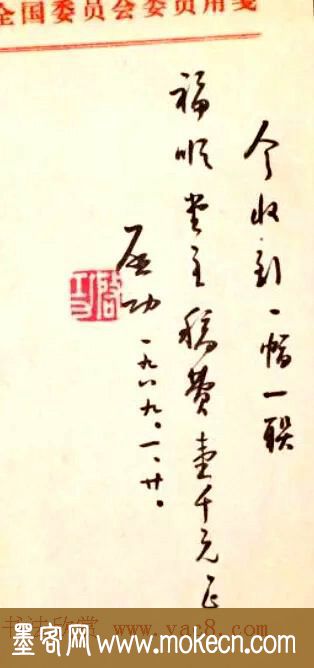 全国委员会委员用笺
今收到一幅一联
福顺堂主稿费壹千元正
启功 一九八九.一.廿.
啟功
书法欣赏 www.yac8.com
墨客网 www.mokecn.com